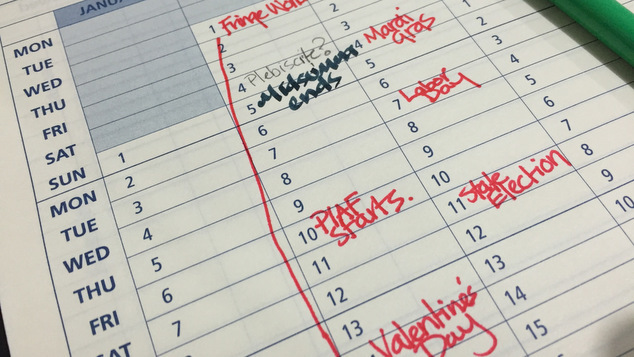 JANU
MON
TUE
WED
THU
FRI
SAT
SUN
MON
TUE
WED
THU
FRI
SAT
1
2
3
4
5
6
7
1 Fringe World
2
3
4 Plebiscite?
5 Midsumma
ends
6
7
8
9
10 PIAF
Starts.
11
12
13
Valentine's
Day
2
3
4 Mardi
Gras
5
6
7 Labor
Day
8
9
10
11 State
Election
12
13
14
15
1
2
3
4
5
6
7
8
9
10